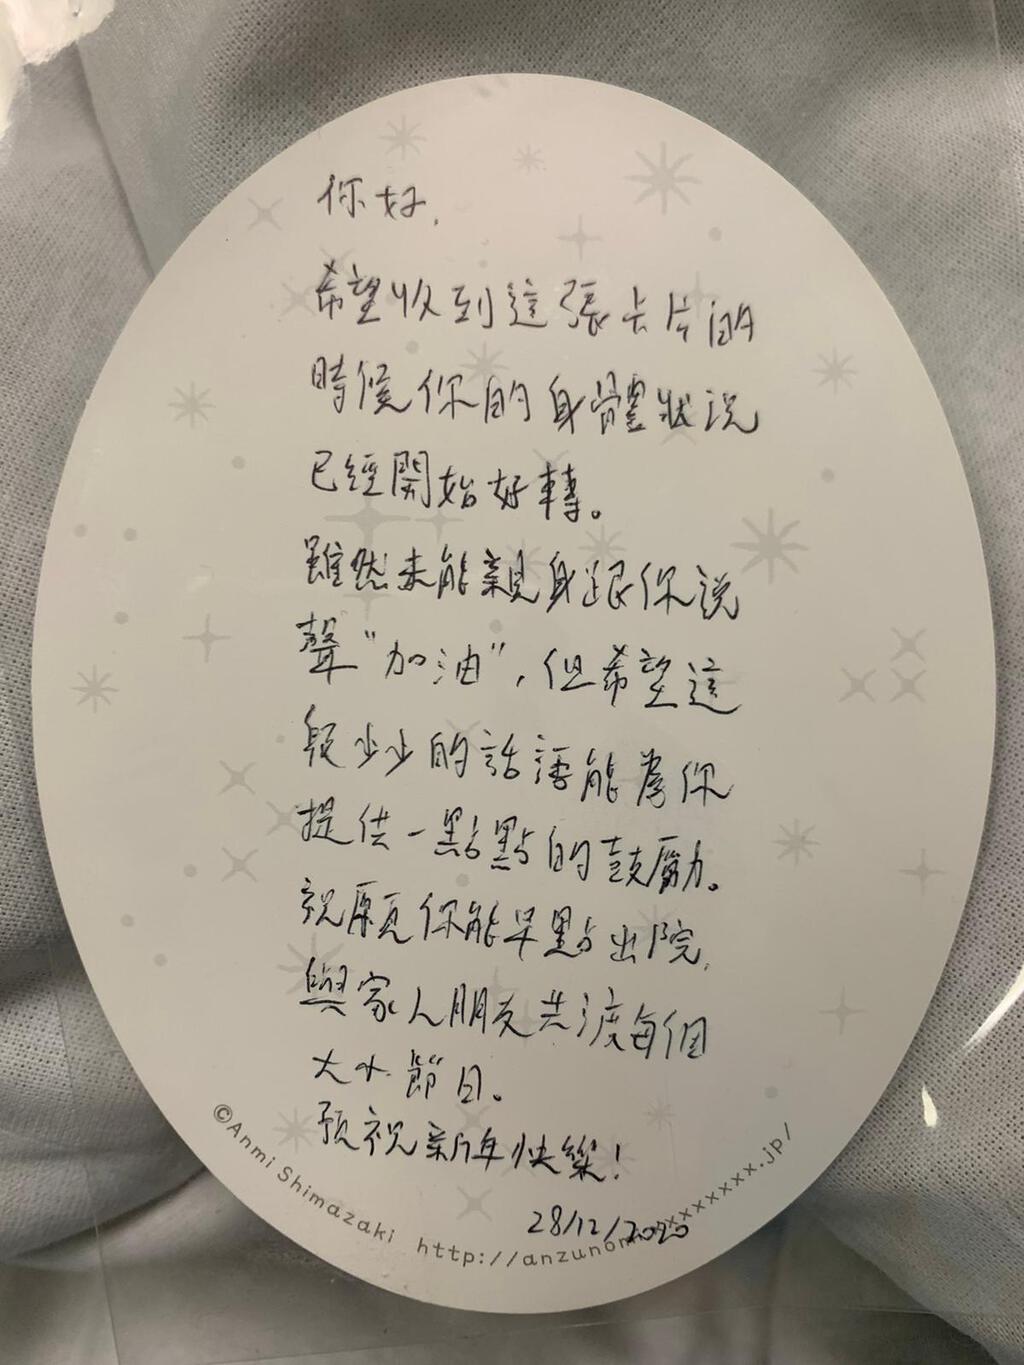 你好,
希望收到這張卡片的
時候你的身體狀況
已經開始好轉。
雖然未能親身跟你說
聲"加油",但希望這
段少少的話語能為你
提供一點點的鼓勵。
祝願你能早點出院,
與家人朋友共渡每個
大小節日。
預祝新年快樂!
28/12/2020
©Anmi Shimazaki http://anzunom xxxxxxxx.jp/